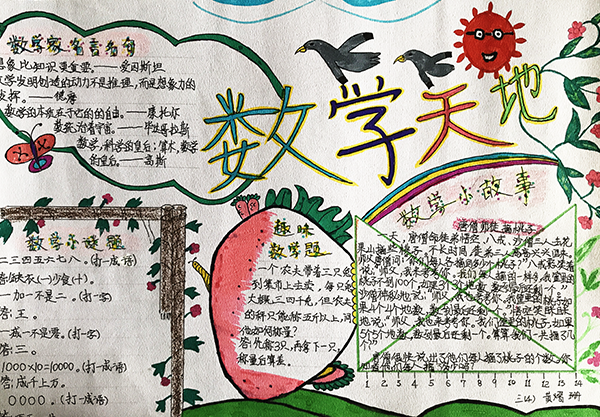 数学天地
数学家名言名句
想象比知识更重要。——爱因斯坦
数学发明创造的动力不是推理，而是想象力的
发挥。——德·摩
数学的本质在于它的自由。——康托尔
数统治着宇宙。——毕达哥拉斯
数学，科学的皇后；算术，数学
的皇后。——高斯
数学小谜题
二三四五六七八。(打一成语)
答:缺衣(一)少食(十)。
一加一不是二。(打一字)
答:王。
一减一不是零。(打一字)
答:三。
1000×10=10000。(打一成语)
答:成千上万。
0000。(打一成语)
趣味
数学题
一个农夫带着三只兔
到集市上去卖，每只兔
大概三四千克，但农夫
的秤只能称五斤以上，问
他如何称量？
答:先称3只，再拿下一只，
称量后算差。
数学小故事
唐僧师徒摘桃子
一天，唐僧命徒弟悟空、八戒、沙僧三人去花
果山摘桃子。不长时间，徒弟三人高高兴兴回来。
师父唐僧问：你们每人各摘回多少个桃子？八戒憨笑着
说：师父，我来考考你。我们每人摘的一样多，我筐里的
桃子不到100个，如果3个3个地数，数到最后还剩1个。
沙僧神秘地说：师父，我也来考考你。我筐里的桃子，如
果4个4个地数，数到最后还剩1个。悟空笑眯眯
地说：师父，我也来考考你。我筐里的桃子，如果
5个5个地数，数到最后还剩1个。
唐僧很快说出了他们每人摘了桃子的个数。你
1 2 3 4 5 6 7 8 9 10 11 12 13 14